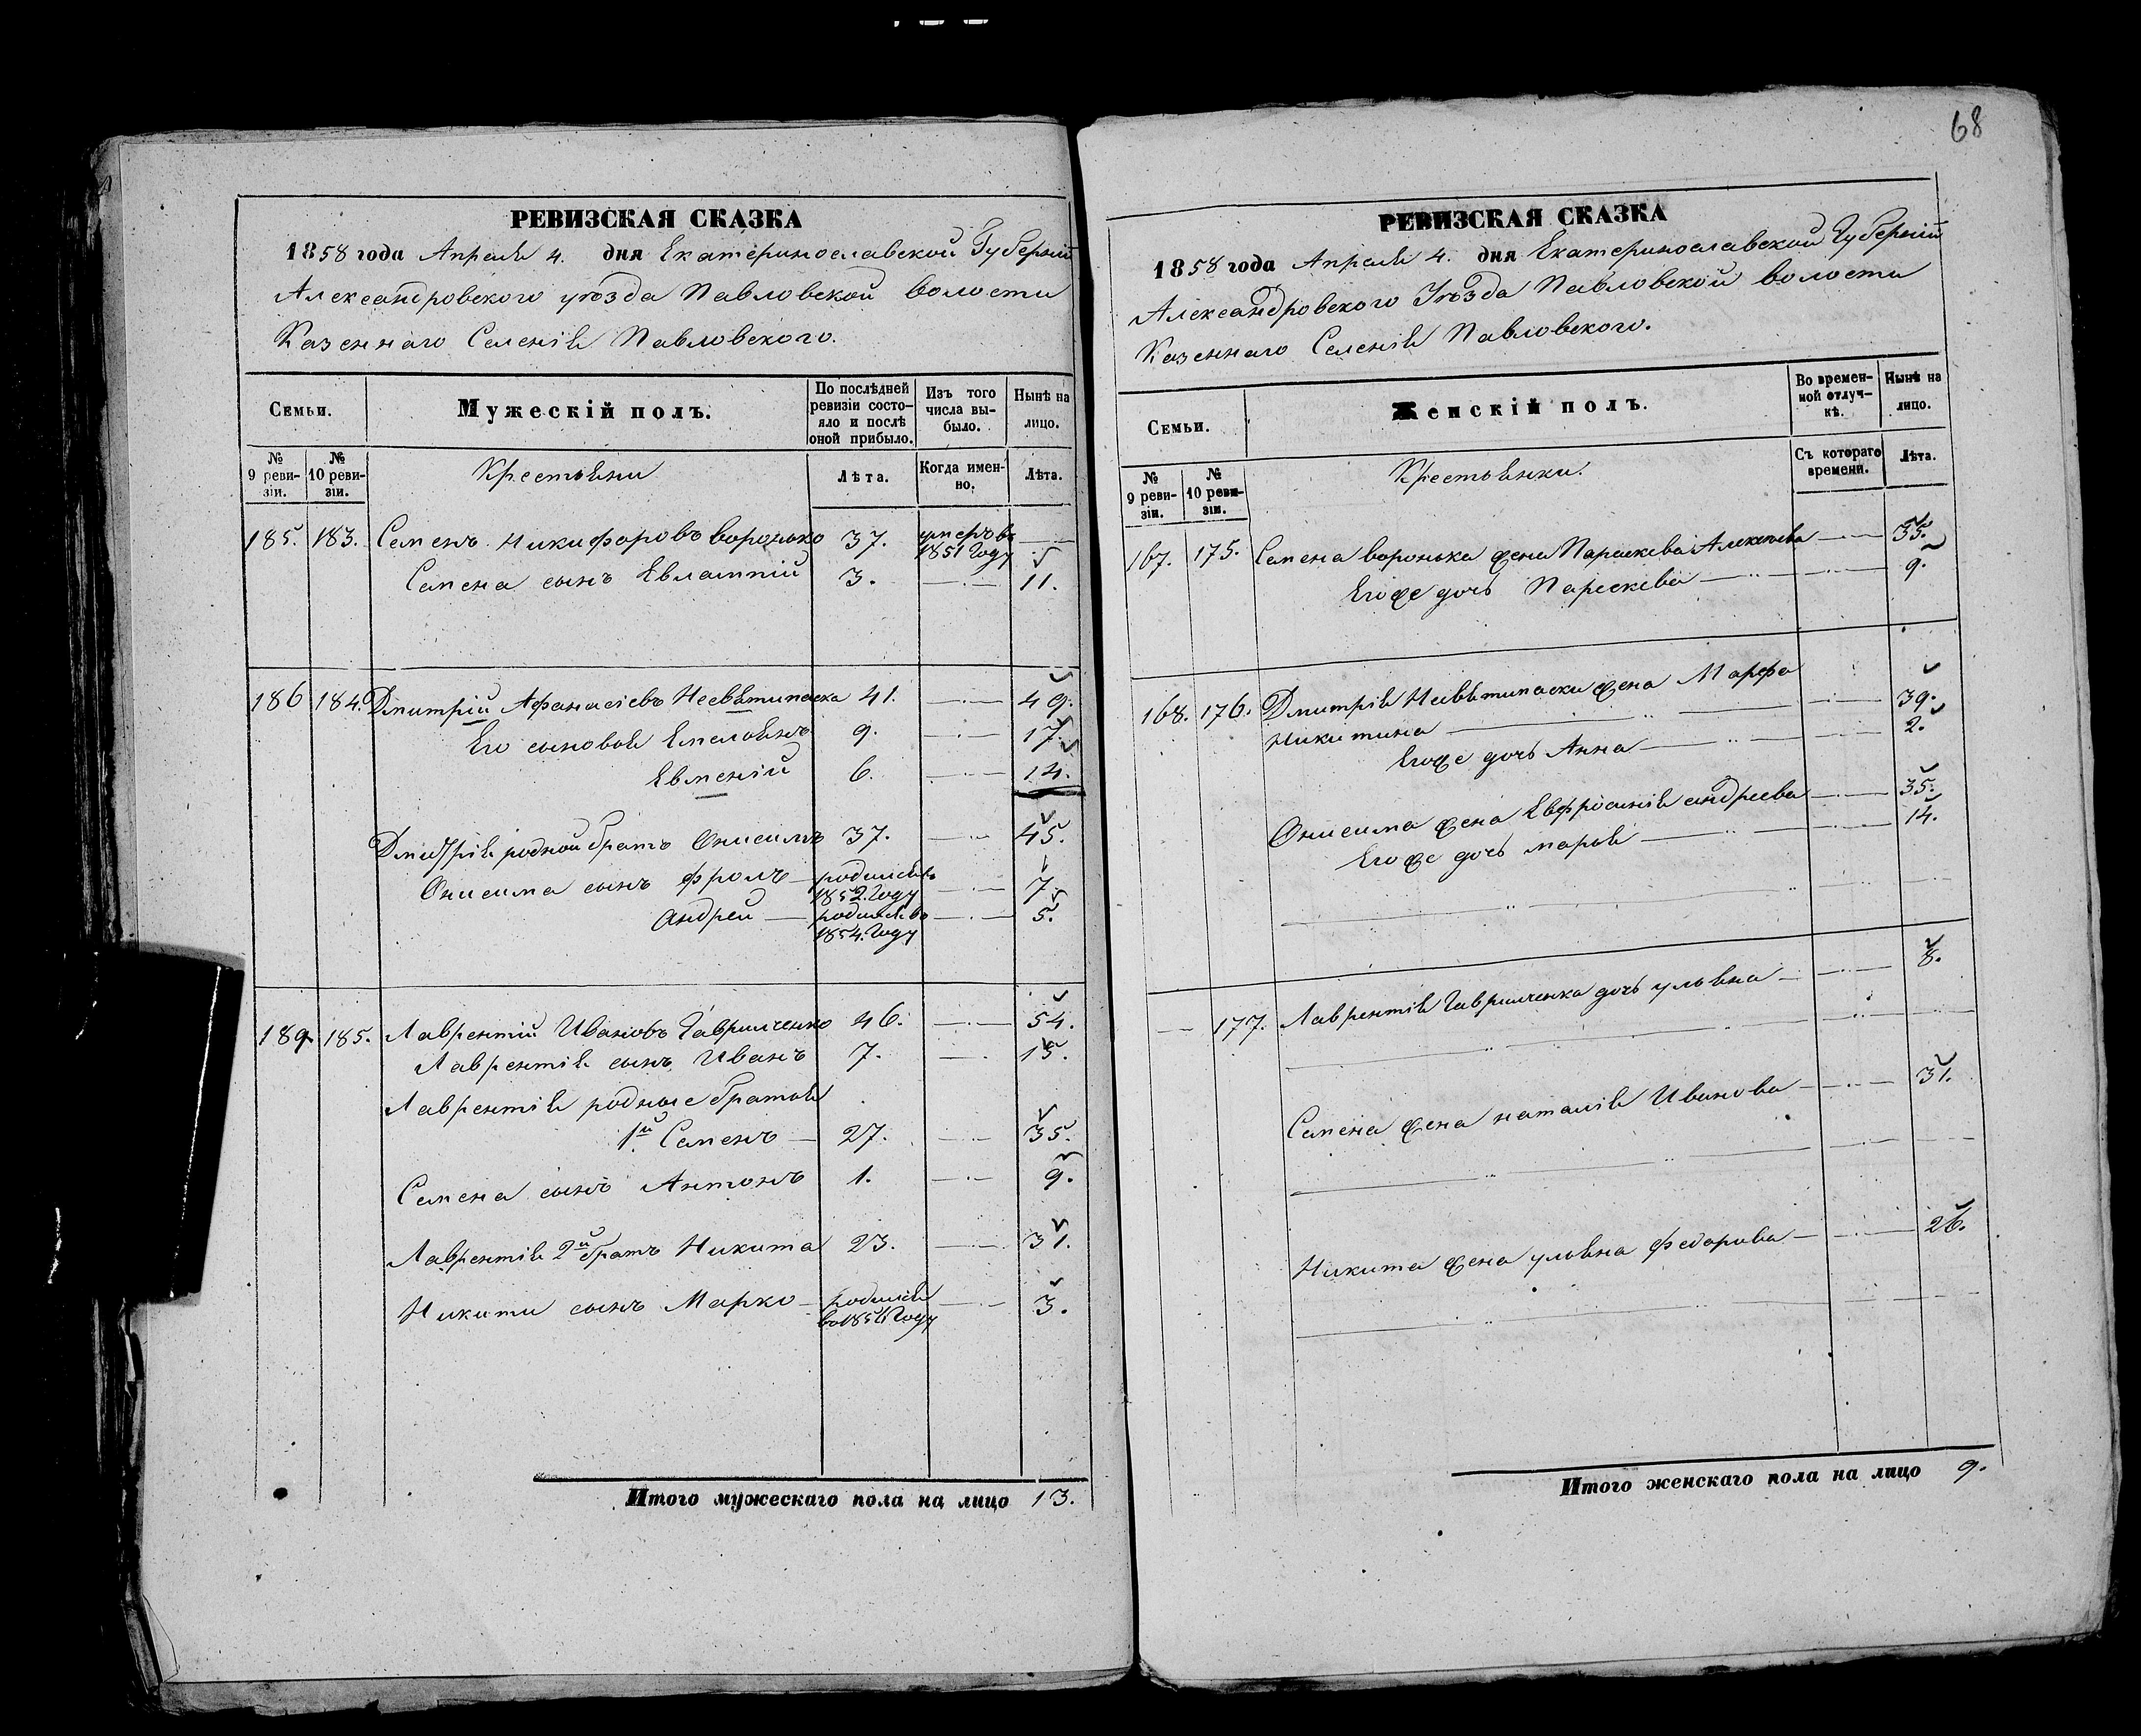 68
РЕВИЗСКАЯ СКАЗКА
1858 года Апреля 4. дня Екатеринославской Губерніи
Александровского уѣзда Павловской волости
Казеннаго Селенія Павловского.
Семьи.
Мужескій полъ.
По послѣдней ревизіи состояло и послѣ оной прибыло.
Изъ того числа выбыло.
Нынѣ на лицо.
№ 9 ревизіи.
№ 10 ревизіи.
Крестьяни
Лѣта.
Когда именно.
Лѣта.
185. 183. Семенъ Никифоровъ воронько 37. умеръ въ 1851 Году —
Семена сынъ Евлампій 3. — 11.
186 184. Дмитрій Афанасіевъ Неевѣтипаска 41. — 49.
Его сыновья Емельянъ 9. — 17.
Евменій 6. — 14.
Дмитрія родной братъ Онисимъ 37. — 45.
Онисима сынъ фролъ — родился въ 1852. Году — 7.
андрей — родился въ 1854. Году — 5.
189. 185. Лаврентій Ивановъ Гавриленко 46. — 54.
Лаврентія сынъ Иванъ 7. — 15.
Лаврентія родные братья
1й Семенъ — 27. — 35.
Семена сынъ Антонъ 1. — 9.
Лаврентія 2й братъ Никита 23. — 31.
Никити сынъ Марко — родился во 1856 Году — 3.
Итого мужескаго пола на лицо 13.
РЕВИЗСКАЯ СКАЗКА
1858 года Апреля 4. дня Екатеринославской Губерніи
Александровского Уѣзда Павловской волости
Казеннаго Селенія Павловского.
Семьи.
Женскій полъ.
Во временной отлучкѣ.
Нынѣ на лицо.
№ 9 ревизіи.
№ 10 ревизіи.
Крестьянки.
Съ котораго времени.
Лѣта.
167. 175. Семена воронька жена Параскева Алексѣева — 35.
Егоже дочь Параскева — 9.
168. 176. Дмитрія Невѣтипаски жена Марфа
Никитина — 39.
Егоже дочь Анна — 2.
Онисима жена Евфросинія андреева — 35.
Егоже дочь марья — 14.
— 177. Лаврентія Гавриленка дочь ульяна — 8.
Семена жена наталія Иванова — 31.
Никита жена ульяна федорова — 26.
Итого женскаго пола на лицо 9.